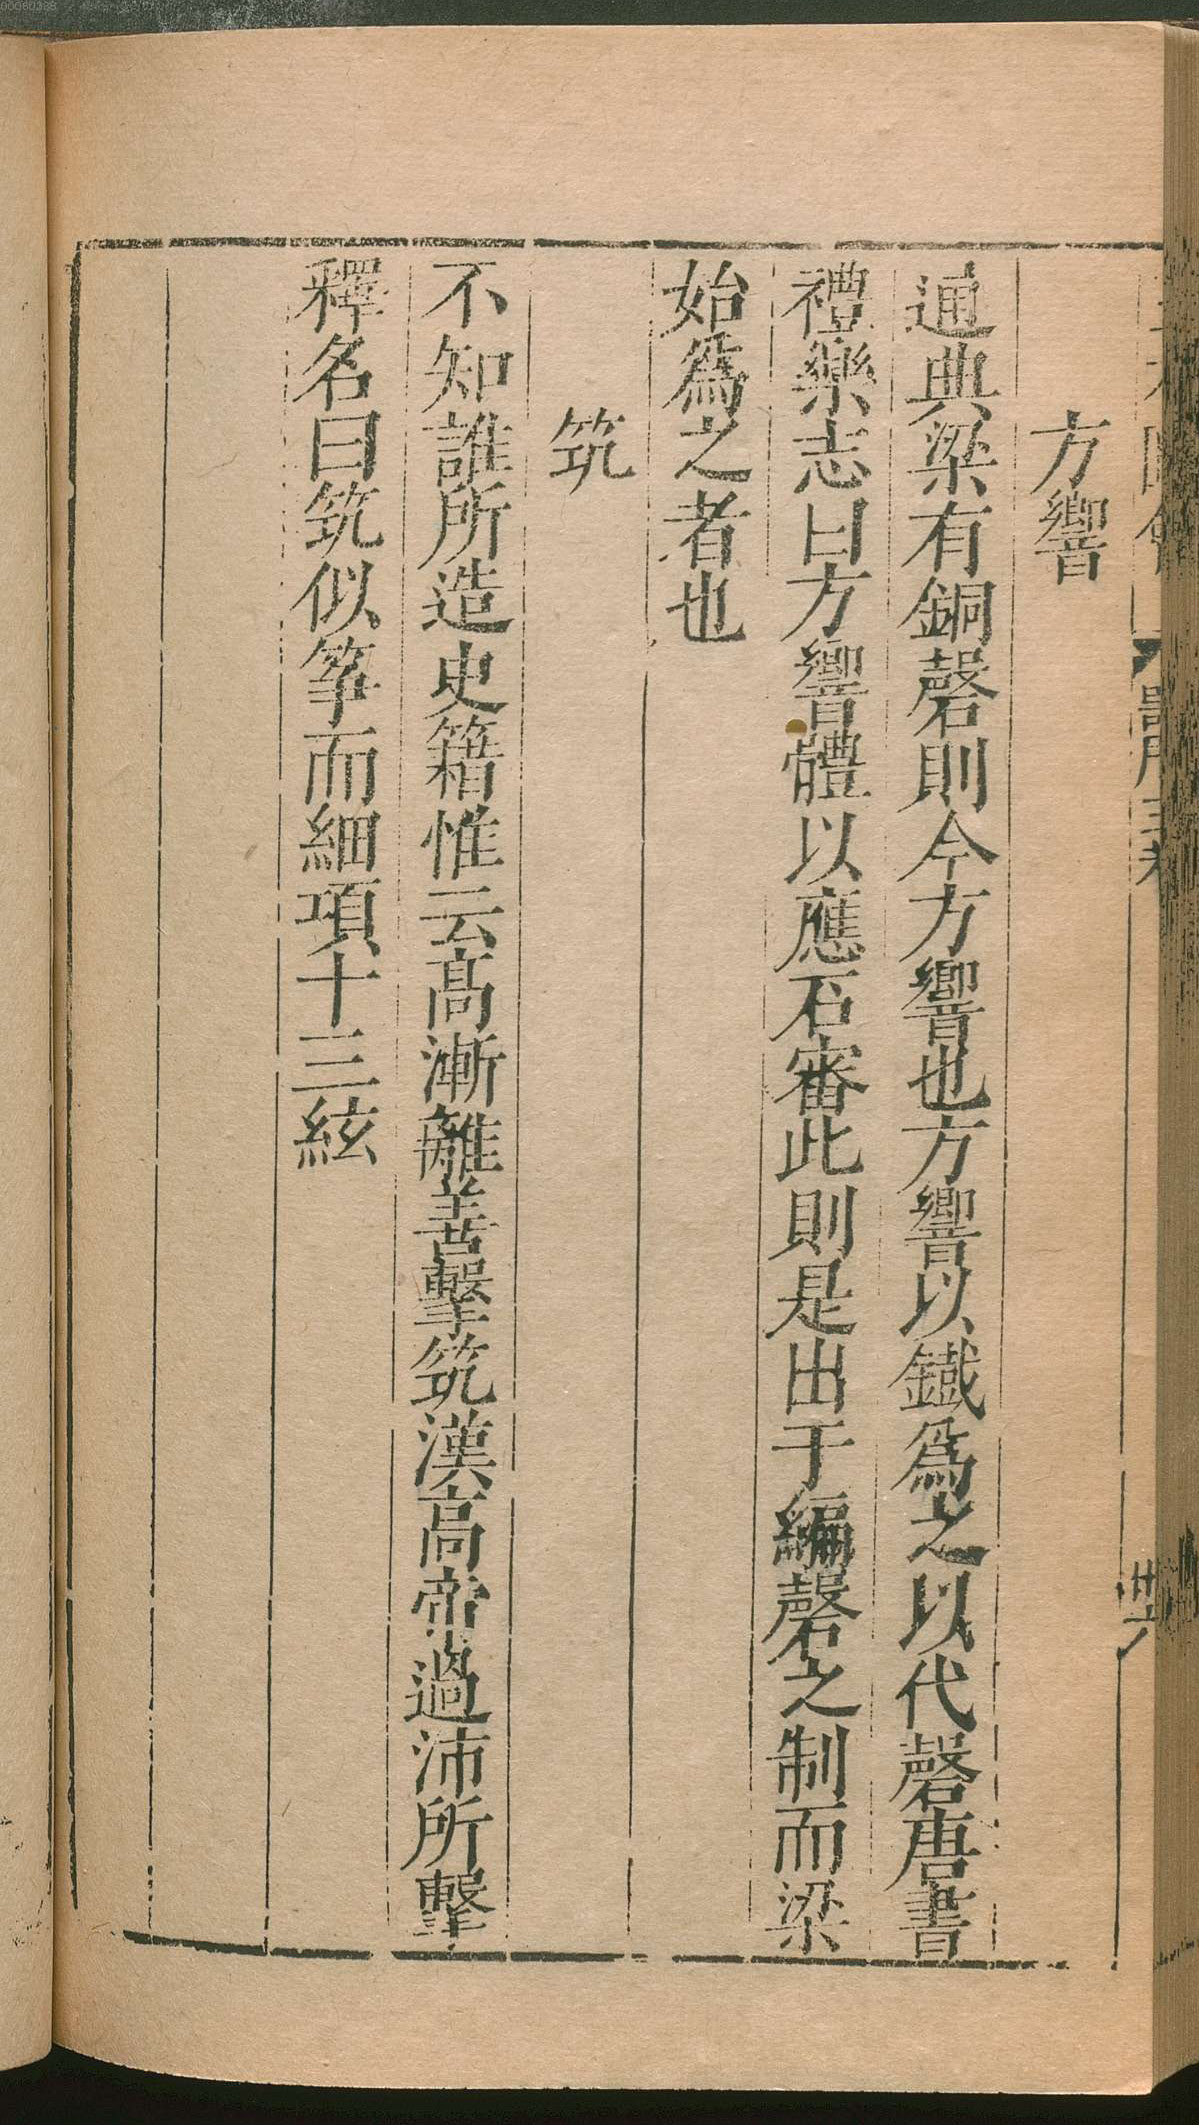 方響
通典梁有銅磬則今方響也方響以鐵爲之以代磬唐書
禮樂志曰方響體以應石審此則是出于編磬之制而梁
始爲之者也
筑
不知誰所造史籍惟云高漸離善擊筑漢高帝過沛所擊
釋名曰筑似箏而細項十三絃
00080288